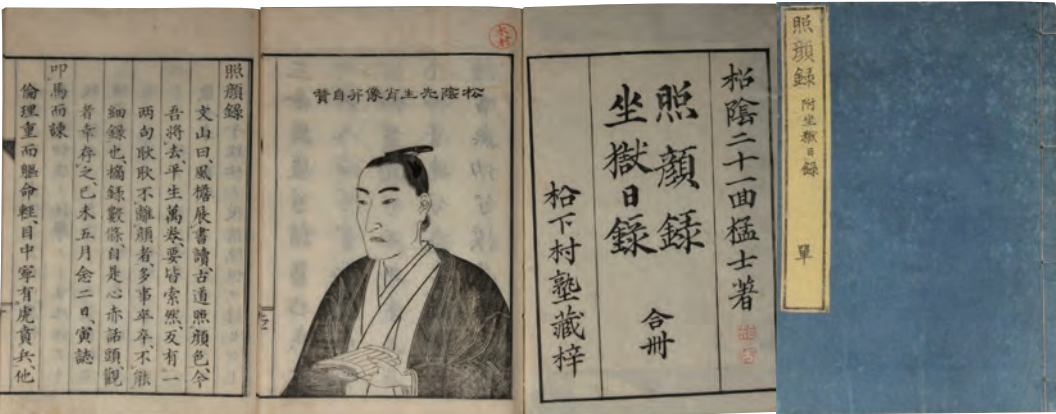 照顔録 附坐獄日録 單
松陰二十一回猛士著
照顔録
坐獄日録 合冊
松下村塾藏梓
松陰先生肖像并自贊
照顔録
文山曰、風檐展書讀、古道照顔色、今
吾將去、平生萬巻、要皆索然、反有一
両句耿耿不離顔者、多事卒卒、不能
細録也、摘録數條、自是心赤話頭、觀
者幸存之、己未五月念二日、寅誌
叩馬而諫
倫理重而軀命輕、目中寧有虎賁兵、他